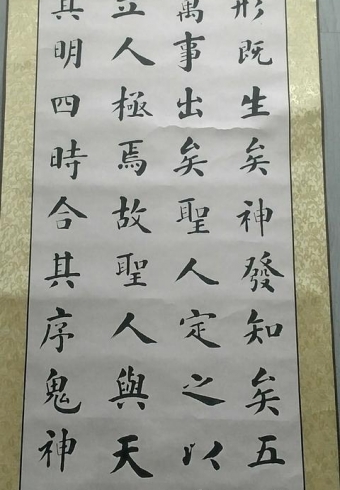 形既生矣神發知矣五
萬事出矣聖人定之以
立人極焉故聖人與天
其明四時合其序鬼神